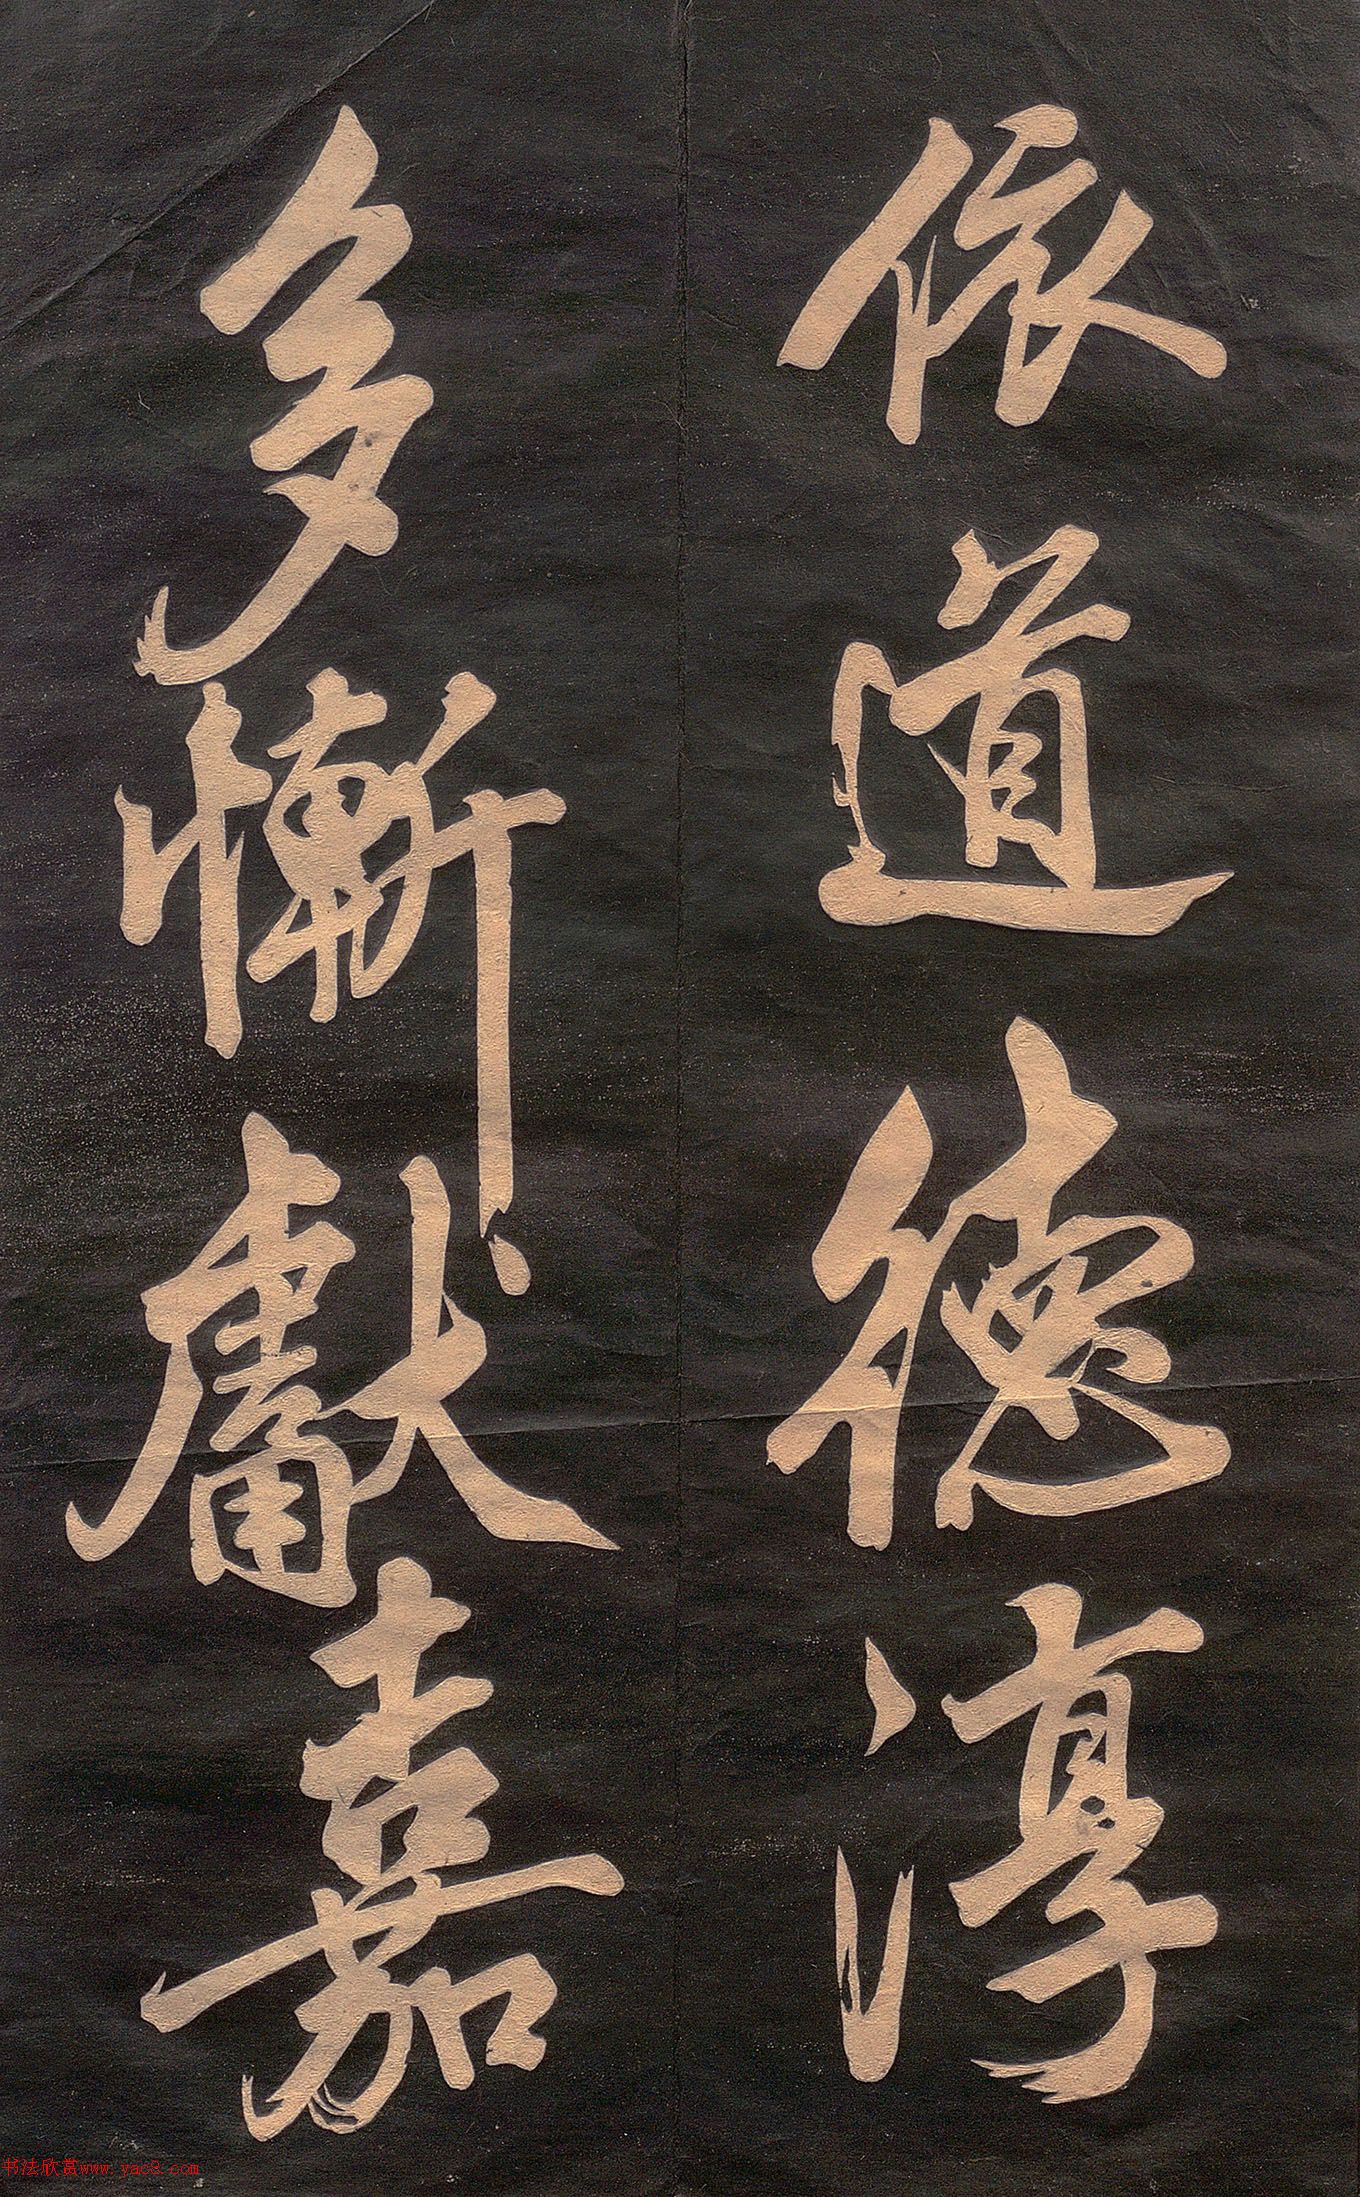 依道德淳
多慚獻嘉
书法欣赏www.yac8.com